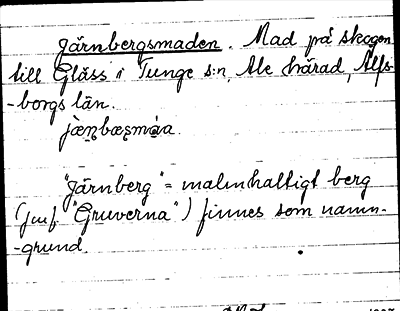 Järnbergsmaden. Mad på skogen
till Gläss i Tunge s:n, Ale härad, Älfs-
-borgs län.
jæṇbæʂmáa.
"Järnberg" = malmhaltigt berg
(jmf. "Gruverna") finnes som namn-
-grund.